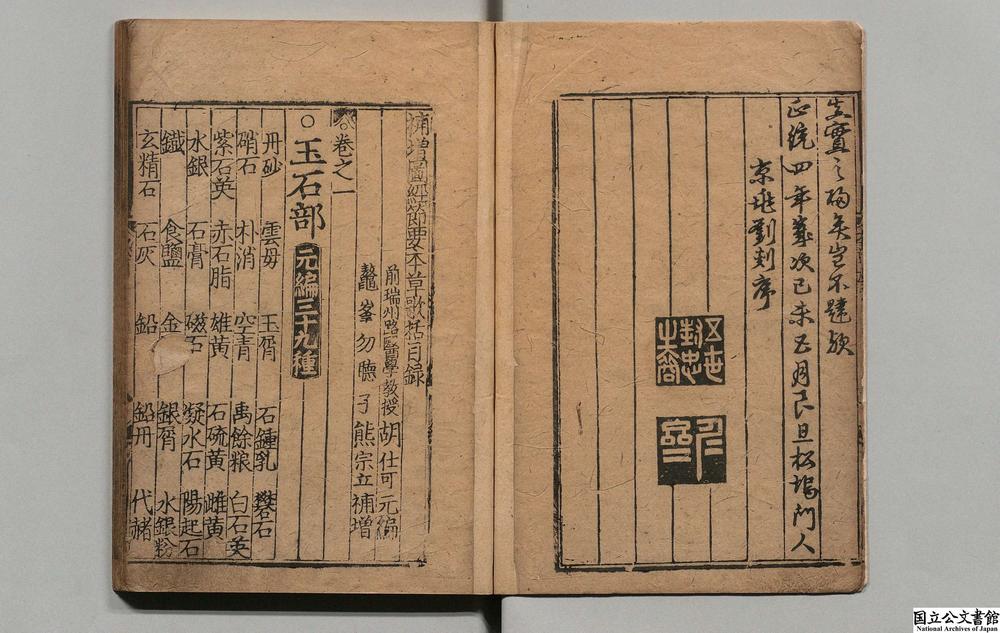 生實之福矣豈不韙歟
正統四年歲次己未五月良旦松塢門人
京兆劉剡序
補增圖經節要本草歌括目錄
前瑞州路醫學教授胡仕可元編
鼇峯勿聽子熊宗立補增
卷之一
○玉石部 元編三十九種
丹砂 雲母 玉屑 石鍾乳 礬石
硝石 朴消 空青 禹餘粮 白石英
紫石英 赤石脂 雄黃 石硫黃 雌黃
水銀 石膏 磁石 凝水石 陽起石
鐵 食鹽 金 銀屑 水銀粉
玄精石 石灰 鉛 鉛丹 代赭
国立公文書館
National Archives of Japan